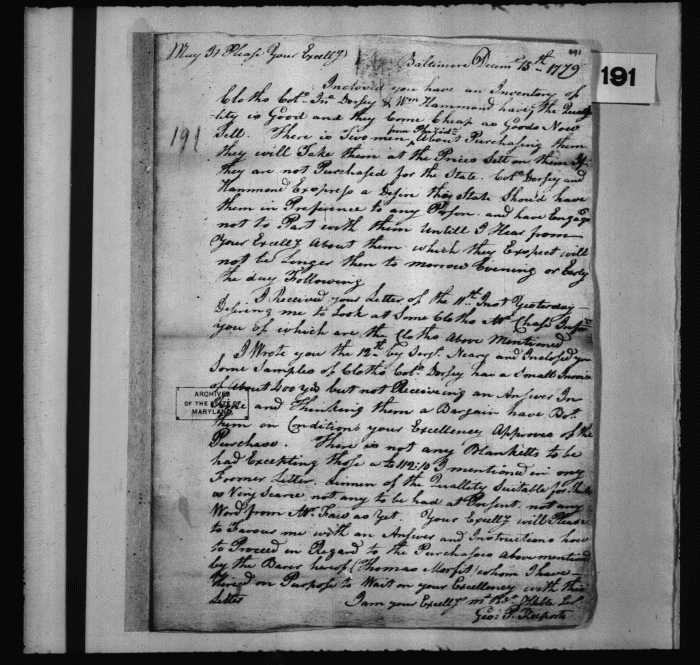 191
May It Please Your Excell'y
Baltimore Decem'r 15th 1779
191
Inclosed you have an Inventory of
Cloths Col'o Jn'o Dorsey & Wm Hammond have, the Qual=
lity is Good and they Come Cheap as Goods Now
Sell. There is Two men from about Purchasing them
they will Take them at the Prices Sett on them If
they are not Purchased for the State. Col'o Dorsey and
Hammond Express a Desire the State Should have
them in Preference to any Person. and have Engag'd
not to Part with them Untill I Hear from
Your Excell'y About them which they Expect will
not be Longer then to morrow Evening or Early
the day Following
I Received your Letter of the 11th Inst Yesterday
Desiring me to Look at Some Cloths Mr Chase Inform
you of which are the Cloths Above Mentioned
I Wrote you the 12th by Serj't Neary and Inclosed you
Some Samples of Cloths Col'o Dorsey has a Small Invoice
of About 400 yds but not Receiving an Answer In
Time and Thinking them a Bargain have Bo't
them on Conditions your Excellency Approves of the
Purchase. There is not any Blanketts to be
had Excepting those at £112:10 I mentioned in my
Former Letter. Linnen of the Quallity Suitable for Shirts
is Very Scarce not any to be had at Present. not any
Word from Mr. Faw as Yet. Your Excell'y will Please
to Favour me with an Answer and Instructions how
to Proceed in Regard to the Purchases Above mentioned
by the Barer hereof (Thomas Morfit) whom I have
Hired on Purpose to Wait on your Excellency with this
Letter
I am your Excell'y m't Ob't H'ble Ser't
Geo: P. Keeports
ARCHIVES
OF THE STATE OF
MARYLAND
191